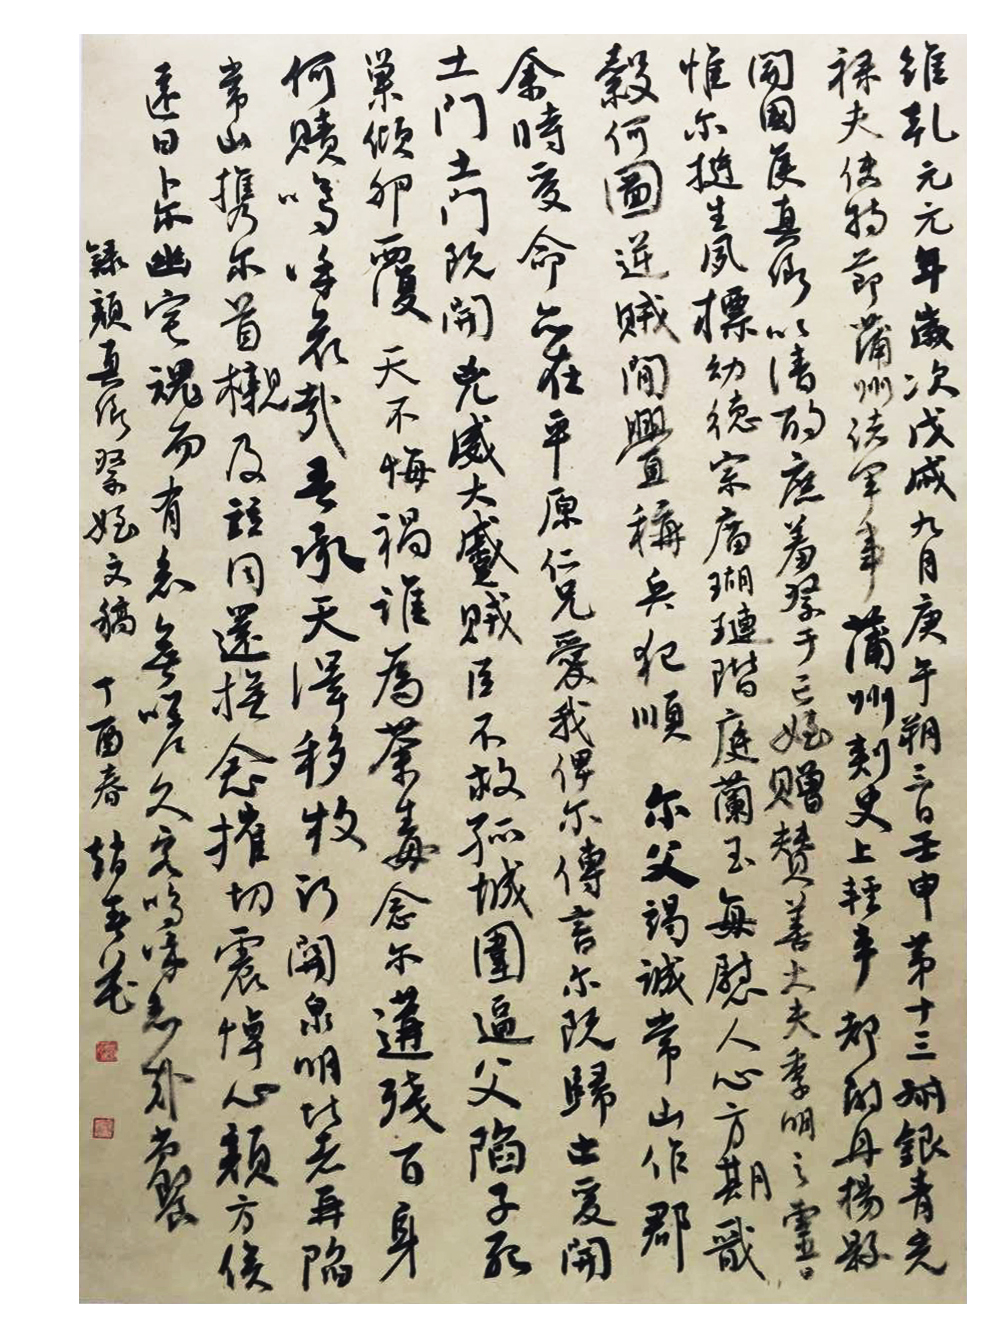 維乾元元年歲次戊戌九月庚午朔三日壬申第十三叔銀青光
祿夫使持節蒲州諸軍事蒲州刺史上輕車都尉丹楊縣
開國侯真卿以清酌庶羞祭于亡姪贈贊善大夫季明之靈曰
惟尔挺生夙標幼德宗廟瑚璉階庭蘭玉每慰人心方期戩
穀何圖逆賊間釁稱兵犯順尔父竭誠常山作郡
余時受命亦在平原仁兄愛我俾尔傳言尔既歸止爰開
土門土門既開兇威大蹙賊臣不救孤城圍逼父陷子死
巢傾卵覆天不悔禍誰為荼毒念尔遘殘百身
何贖嗚呼哀哉吾承天澤移牧河關泉明比者再陷
常山攜尔首櫬及茲同還撫念摧切震悼心顏方俟
遠日卜尔幽宅魂而有知無嗟久客嗚呼哀哉尚饗
錄顏真卿祭姪文稿丁酉春